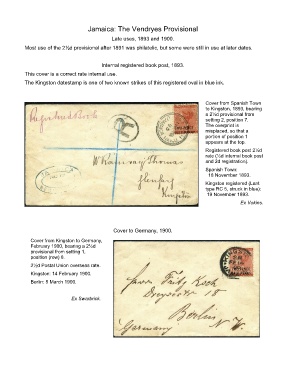 Jamaica: The Vendryes Provisional
Late uses, 1893 and 1900.
Most use of the 2½d provisional after 1891 was philatelic, but some were still in use at later dates.
Internal registered book post, 1893.
This cover is a correct rate internal use.
The Kingston datestamp is one of two known strikes of this registered oval in blue ink.
Cover from Spanish Town
to Kingston, 1893, bearing
a 2½d provisional from
setting 2, position 7.
The overprint is
misplaced, so that a
portion of position 1
appears at the top.
Registered book post 2½d
rate (½d internal book post
and 2d registration).
Spanish Town:
18 November 1893.
Kingston registered (Lant
type RC 5, struck in blue):
18 November 1893.
Registered Book
R
W Ramsay Thomas
Glenbury
Kingston
Cover to Germany, 1900.
Cover from Kingston to Germany,
February 1900, bearing a 2½d
provisional from setting 1,
position (row) 6.
2½d Postal Union overseas rate.
Kingston: 14 February 1900.
Berlin: 5 March 1900.
Ex Swabrick.
Herrn Fritz Koch
15
Berlin
Germany N. W.